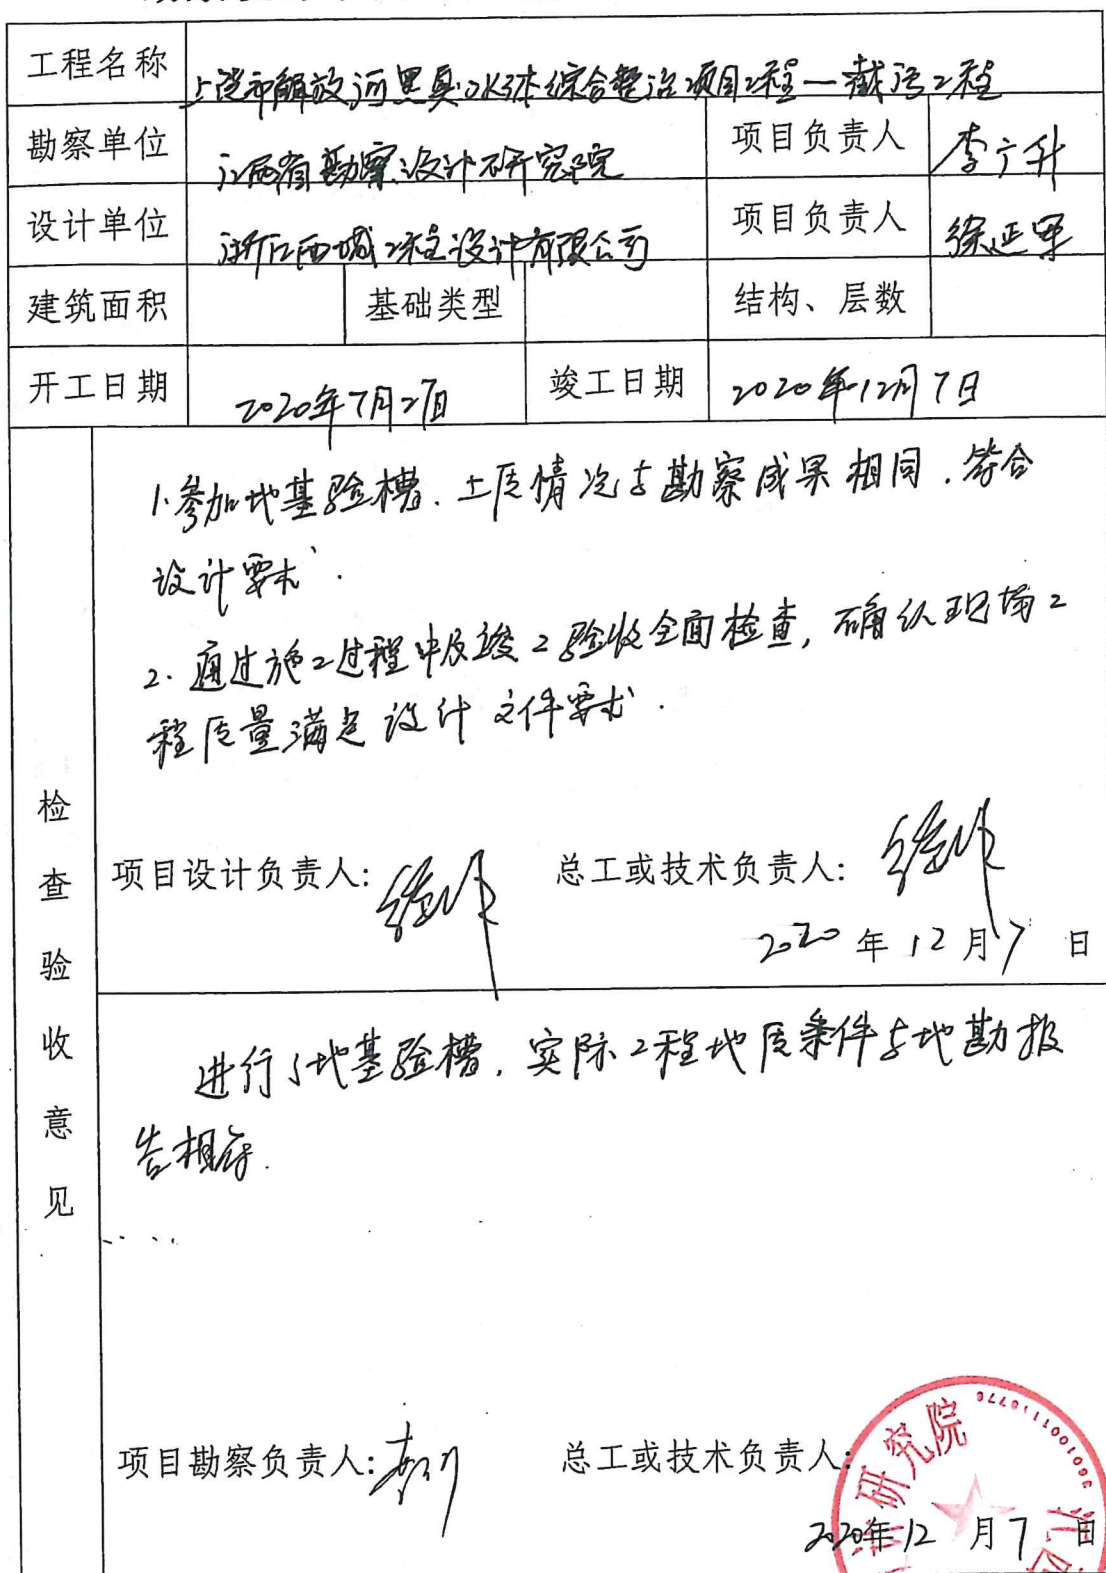 工程名称 上饶市解放河黑臭水体综合整治项目工程一截污工程
勘察单位 江西省勘察设计研究院 项目负责人 李广升
设计单位 浙江西城工程设计有限公司 项目负责人 徐正军
建筑面积 基础类型 结构、层数
开工日期 2020年7月27日 竣工日期 2020年12月7日
检查验收意见
1.参加地基验槽.土质情况与勘察成果相同.符合
设计要求.
2.通过施工过程中及竣工验收全面检查,确认现场工
程质量满足设计文件要求.
项目设计负责人: 总工或技术负责人:
2020年12月7日
进行了地基验槽.实际工程地质条件与地勘报
告相符.
项目勘察负责人: 总工或技术负责人:
2020年12月7日
研究院